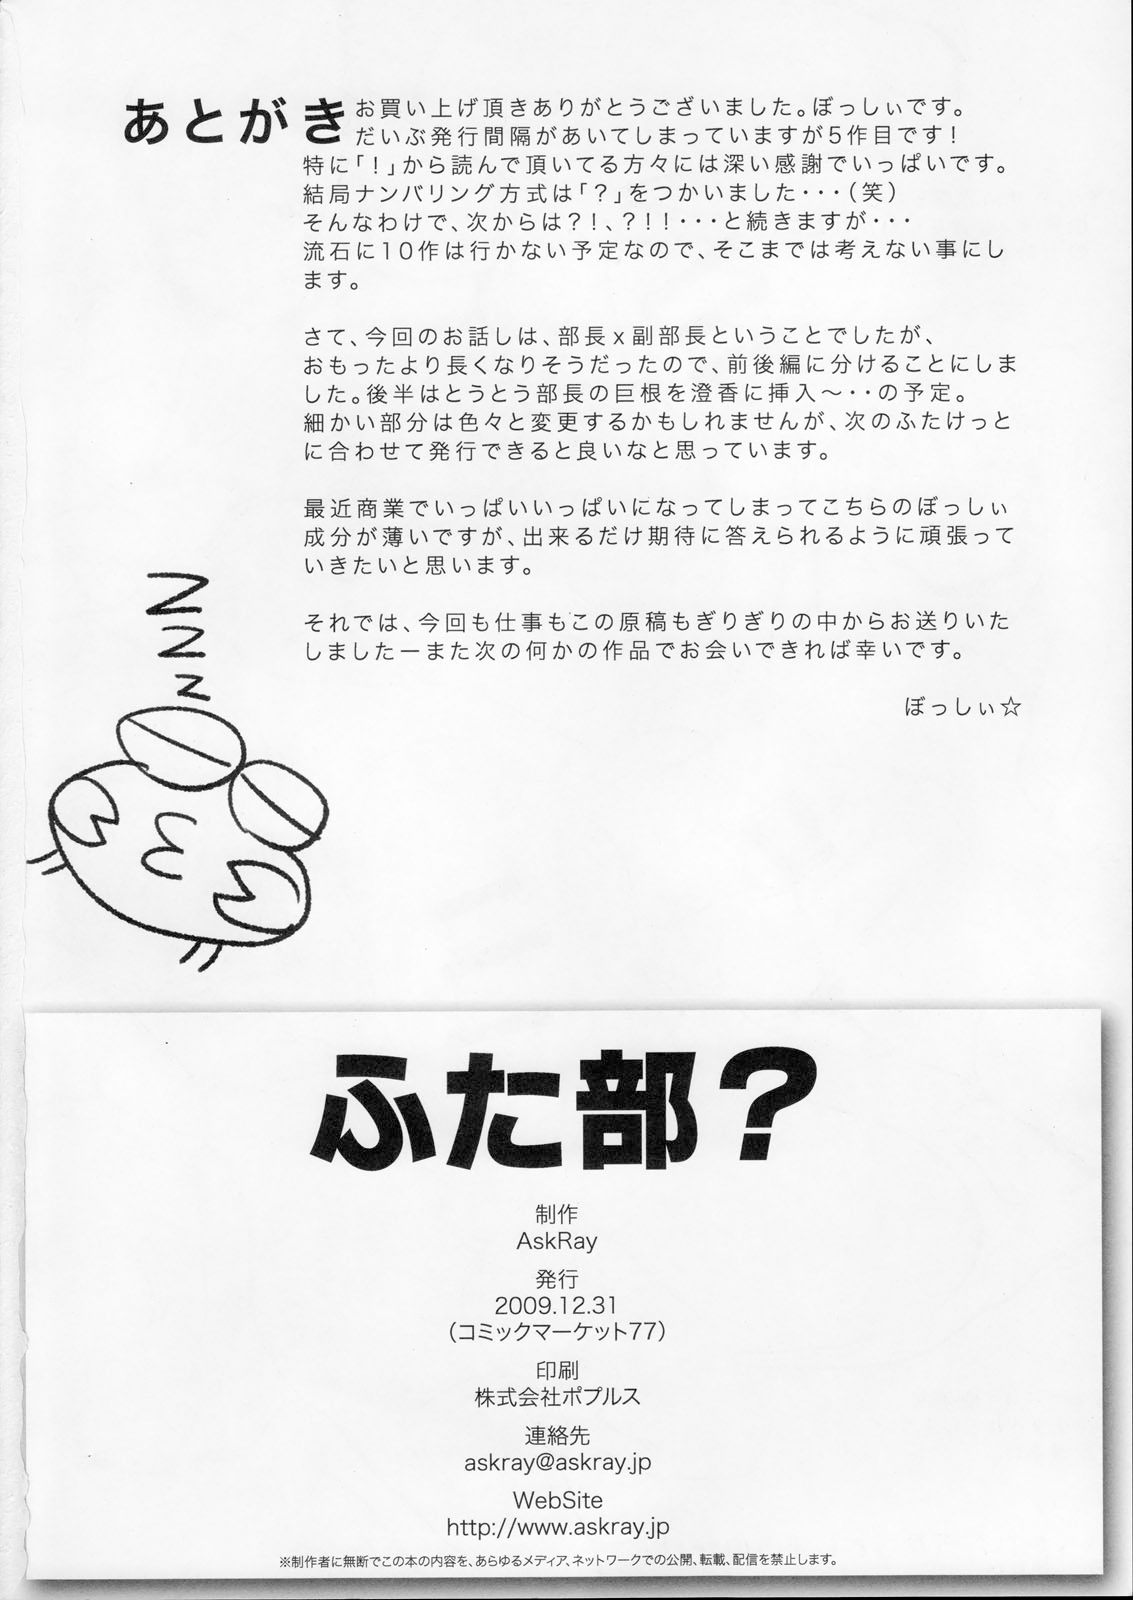 あとがき
お買い上げ頂きありがとうございました。ぼっしぃです。
だいぶ発行間隔があいてしまっていますが5作目です!
特に「!」から読んで頂いてる方々には深い感謝でいっぱいです。
結局ナンバリング方式は「?」をつかいました・・・(笑)
そんなわけで、次からは?!、?!!・・・と続きますが・・・
流石に10作は行かない予定なので、そこまでは考えない事にし
ます。
さて、今回のお話しは、部長x副部長ということでしたが、
おもったより長くなりそうだったので、前後編に分けることにしま
した。後半はとうとう部長の巨根を澄香に挿入〜・・の予定。
細かい部分は色々と変更するかもしれませんが、次のふたけっと
に合わせて発行できると良いなと思っています。
最近商業でいっぱいいっぱいになってしまってこちらのぼっしぃ
成分が薄いですが、出来るだけ期待に答えられるように頑張って
いきたいと思います。
それでは、今回も仕事もこの原稿もぎりぎりの中からお送りいた
しましたーまた次の何かの作品でお会いできれば幸いです。
ぼっしぃ☆
zzz
ふた部?
制作
AskRay
発行
2009.12.31
(コミックマーケット77)
印刷
株式会社ポプルス
連絡先
askray@askray.jp
WebSite
http://www.askray.jp
※制作者に無断でこの本の内容を、あらゆるメディア、ネットワークでの公開、転載、配信を禁止します。